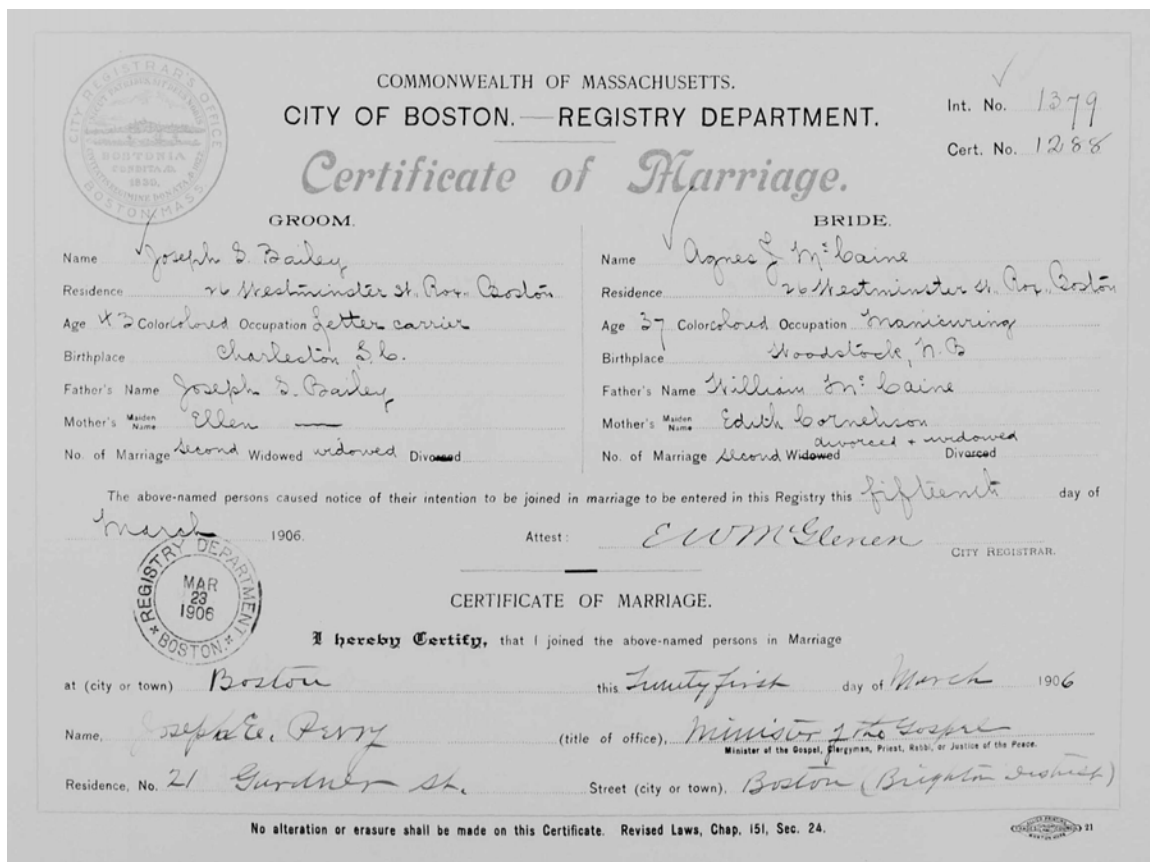 COMMONWEALTH OF MASSACHUSETTS.
CITY OF BOSTON.—REGISTRY DEPARTMENT.
Int. No. 1379
Cert. No. 1288
CITY REGISTRAR'S OFFICE
BOSTONIA
CONDITA A.D.
1630.
BOSTON, MASS.
Certificate of Marriage.
GROOM.
Name Joseph S. Bailey
Residence 26 Westminster St., Rox., Boston
Age 43 Color colored Occupation Letter carrier
Birthplace Charleston S.C.
Father's Name Joseph S. Bailey
Mother's Maiden Name Ellen —
No. of Marriage second Widowed widowed Divorced
BRIDE.
Name Agnes J McCaine
Residence 26 Westminster St., Rox., Boston
Age 37 Color colored Occupation Manicuring
Birthplace Woodstock, N.B
Father's Name William McCaine
Mother's Maiden Name Edith Cornelison
divorced + widowed
No. of Marriage second Widowed Divorced
The above-named persons caused notice of their intention to be joined in marriage to be entered in this Registry this fifteenth day of
March 1906. Attest: E W McGlenen
CITY REGISTRAR.
REGISTRY DEPARTMENT
MAR
23
1906
BOSTON.
CERTIFICATE OF MARRIAGE.
I hereby Certify, that I joined the above-named persons in Marriage
at (city or town) Boston this Twenty first day of March 1906
Name, Joseph E. Perry (title of office), Minister of the Gospel
Minister of the Gospel, Clergyman, Priest, Rabbi, or Justice of the Peace.
Residence, No. 21 Gardner St. Street (city or town), Boston (Brighton District)
No alteration or erasure shall be made on this Certificate. Revised Laws, Chap. 151, Sec. 24.
21